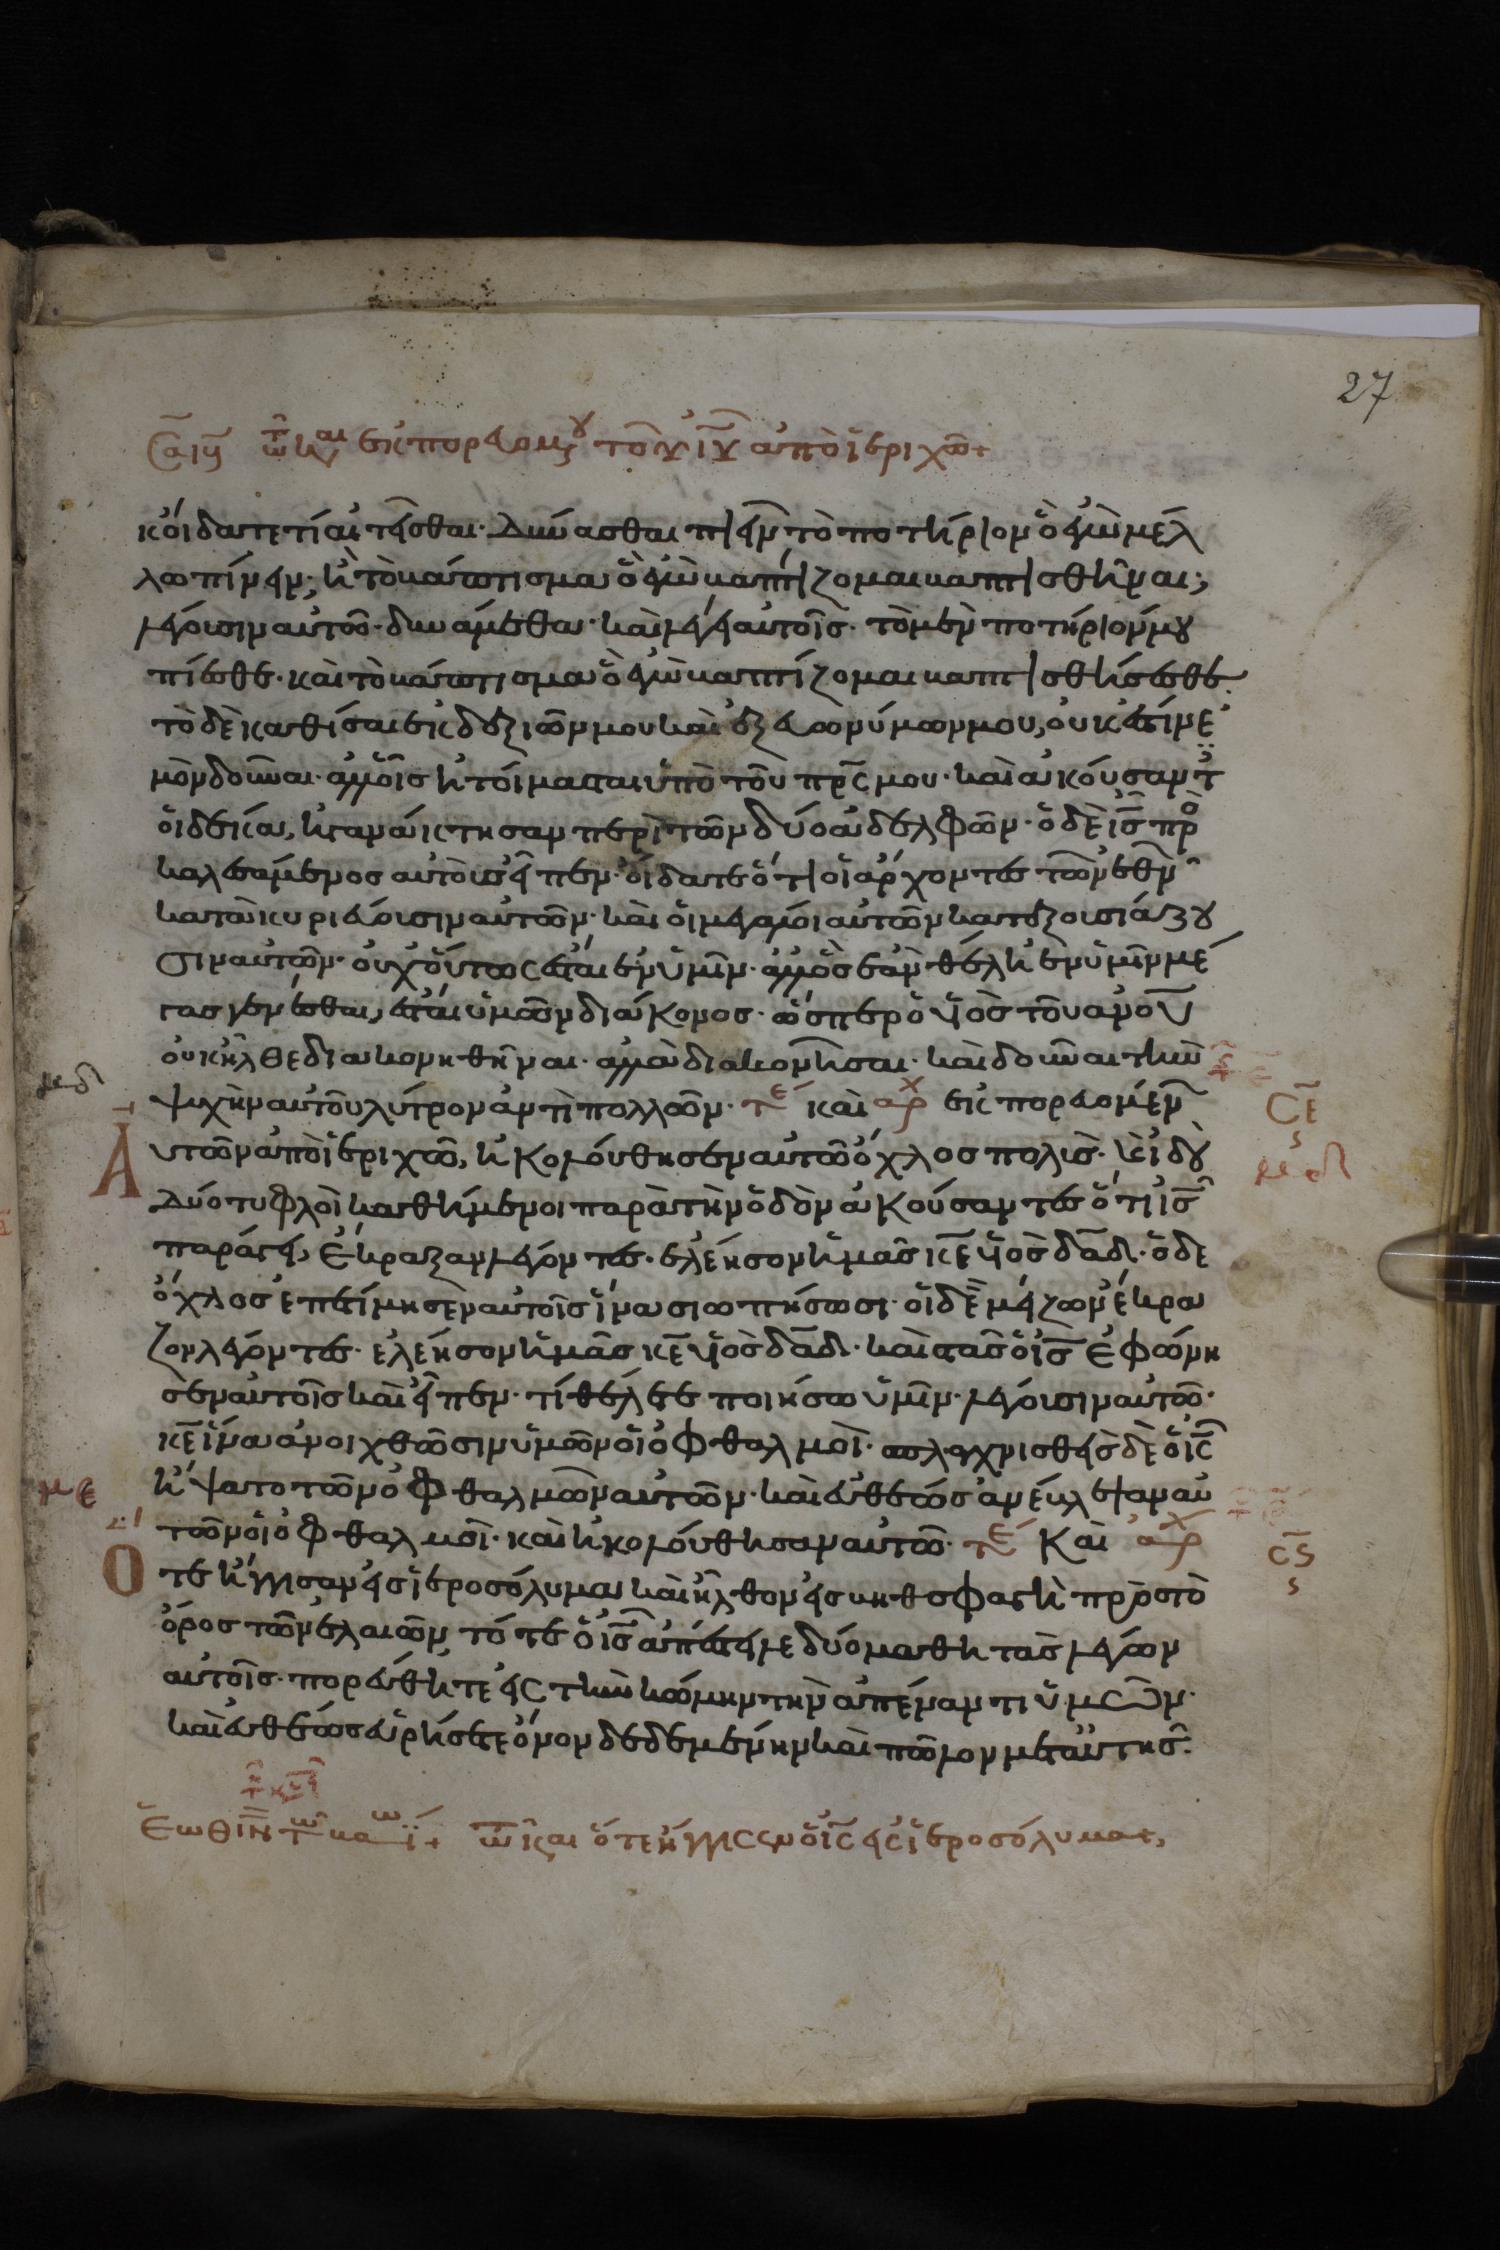 27
Σα ιζ τω καιρ εκπορευομου του ιυ απο ϊεριχω+
κ' οίδατε τί αἰτεῖσθαι· δύνασθαι πιεῖν τὸ ποτήριον ὃ ἐγὼ μέλ
λω πίνειν; ἢ τὸ βάπτισμα ὃ ἐγὼ βαπτίζομαι βαπτισθῆναι;
λέγουσιν αὐτῶ· δυνάμεθα· καὶ λέγει αὐτοῖς· τὸ μὲν ποτήριόν μου
πίεσθε· καὶ τὸ βάπτισμα ὃ ἐγὼ βαπτίζομαι βαπτισθήσεσθε·
τὸ δὲ καθίσαι ἐκ δεξιῶν μου καὶ ἐξ εὐωνύμων μου, οὐκ ἔστιν ἐ
μὸν δοῦναι· ἀλλ' οἷς ἡτοίμασται ὑπὸ τοῦ πρς μου· καὶ ἀκούσαντ
οἱ δέκα, ἠγανάκτησαν περὶ τῶν δύο ἀδελφῶν· ὁ δὲ ις προ
καλεσάμενος αὐτοὺς εἶπεν· οἴδατε ὅτι οἱ ἄρχοντες τῶν ἐθν
κατακυριεύουσιν αὐτῶν· καὶ οἱ μεγάλοι αὐτῶν κατεξουσιάζου
σιν αὐτῶν· οὐχ οὕτως ἔσται ἐν ὑμῖν· ἀλλ' ὃς ἐὰν θέλη ἐν ὑμῖν μέ
γας γενέσθαι, ἔσται ὑμῶν διάκονος· ὥσπερ ὁ υἱὸς τοῦ ανου
οὐκ ἦλθε διακονηθῆναι· ἀλλὰ διακονῆσαι· καὶ δοῦναι τὴν
ψυχὴν αὐτοῦ λύτρον ἀντὶ πολλῶν· τε καὶ αρχ ἐκπορευομέν
ων αὐτῶν ἀπὸ ϊεριχῶ, ἠκολούθησεν αὐτῶ ὄχλος πολύς· κ ἰδοὺ
δύο τυφλοὶ καθήμενοι παρὰ τὴν ὁδὸν ἀκούσαντες ὅτι ις
παράγει, ἔκραξαν λέγοντες· ἐλέησον ἡμᾶς κε υἱὸς δαδ· ὁ δὲ
ὄχλος ἐπετίμησεν αὐτοῖς ἵνα σιωπήσωσι· οἱ δὲ μεῖζων ἔκρα
ζον λέγοντες· ἐλέησον ἡμᾶς κε υἱὸς δαδ· καὶ στὰς ὁ ις ἐφώνη
σεν αὐτοῖς καὶ εἶπεν· τί θέλετε ποιήσω ὑμῖν· λέγουσιν αὐτῶ·
κε ἵνα ἀνοιχθῶσιν ὑμῶν οἱ ὀφθαλμοί· σπλαγχνισθεὶς δὲ ὁ ις
ἥψατο τῶν ὀφθαλμῶν αὐτῶν· καὶ εὐθέως ἀνέβλεψαν αὐ
τῶν οἱ ὀφθαλμοί· καὶ ἠκολούθησαν αὐτῶ· τε Καὶ αρχ
Ὅτε ἤγγισαν εἰς ἱεροσόλυμα καὶ ἦλθον εἰς βηθσφαγὴ πρὸς τὸ
ὄρος τῶν ἐλαιῶν, τότε ὁ ις ἀπέστειλε δύο μαθητὰς λέγων
αὐτοῖς· πορεύθητε εἰς τὴν κώμην τὴν ἀπέναντι ὑμῶν·
καὶ εὐθέως εὑρήσετε ὄνον δεδεμένην καὶ πῶλον μετ' αὐτῆς·
Ἑωθιν τω κα τω και ὅτε ἤγγισεν ὁ ις εἰς ἱεροσόλυμα+
μδ
Α
σε
μδ
με
σς